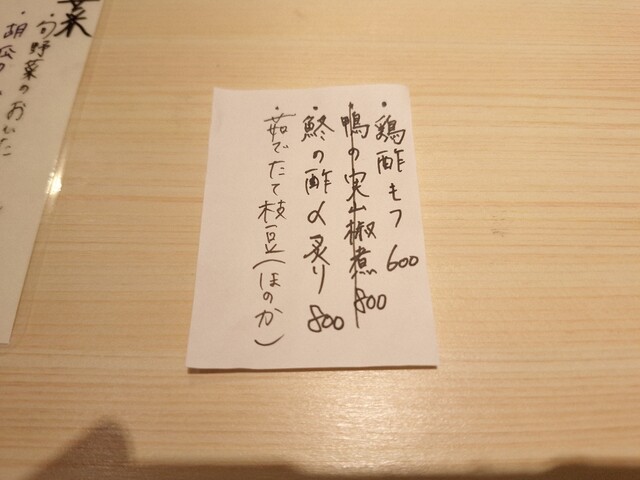 ・鶏酢モツ 600
・鴨の実山椒煮 800
・鯵の酢〆炙り 800
・茹でたて枝豆(ほのか)
菜
・旬野菜のおひた
・胡瓜の